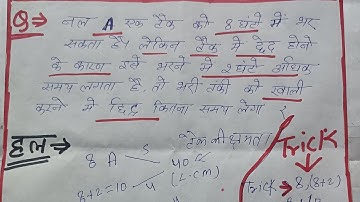 Q→ नल A एक टैंक को 8 घंटे में भर
सकता है। लेकिन टैंक में छेद होने
के कारण इसे भरने में 2 घंटे अधिक
समय लगता है, तो भरी टंकी को खाली
करने में छिद्र कितना समय लेगा
हल→ टैंक की क्षमता
8 A 5 40
8+2=10 4 (L.C.M)
TRICK
TRICK → 8, (8+2)